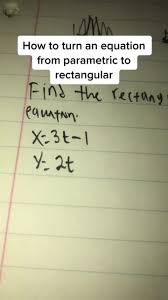 How to turn an equation
from parametric to
rectangular
Find the rectang
equation.
x=3t-1
y=2t